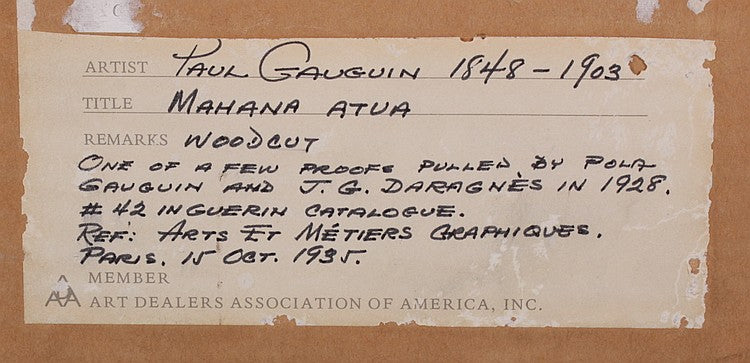 ARTIST PAUL GAUGUIN 1848-1903
TITLE MAHANA ATUA
REMARKS WOODCUT
ONE OF A FEW PROOFS PULLED BY POLA
GAUGUIN AND J. G. DARAGNÈS IN 1928.
# 42 IN GUERIN CATALOGUE.
REF: ARTS ET MÉTIERS GRAPHIQUES.
PARIS. 15 OCT. 1935.
MEMBER
ART DEALERS ASSOCIATION OF AMERICA, INC.